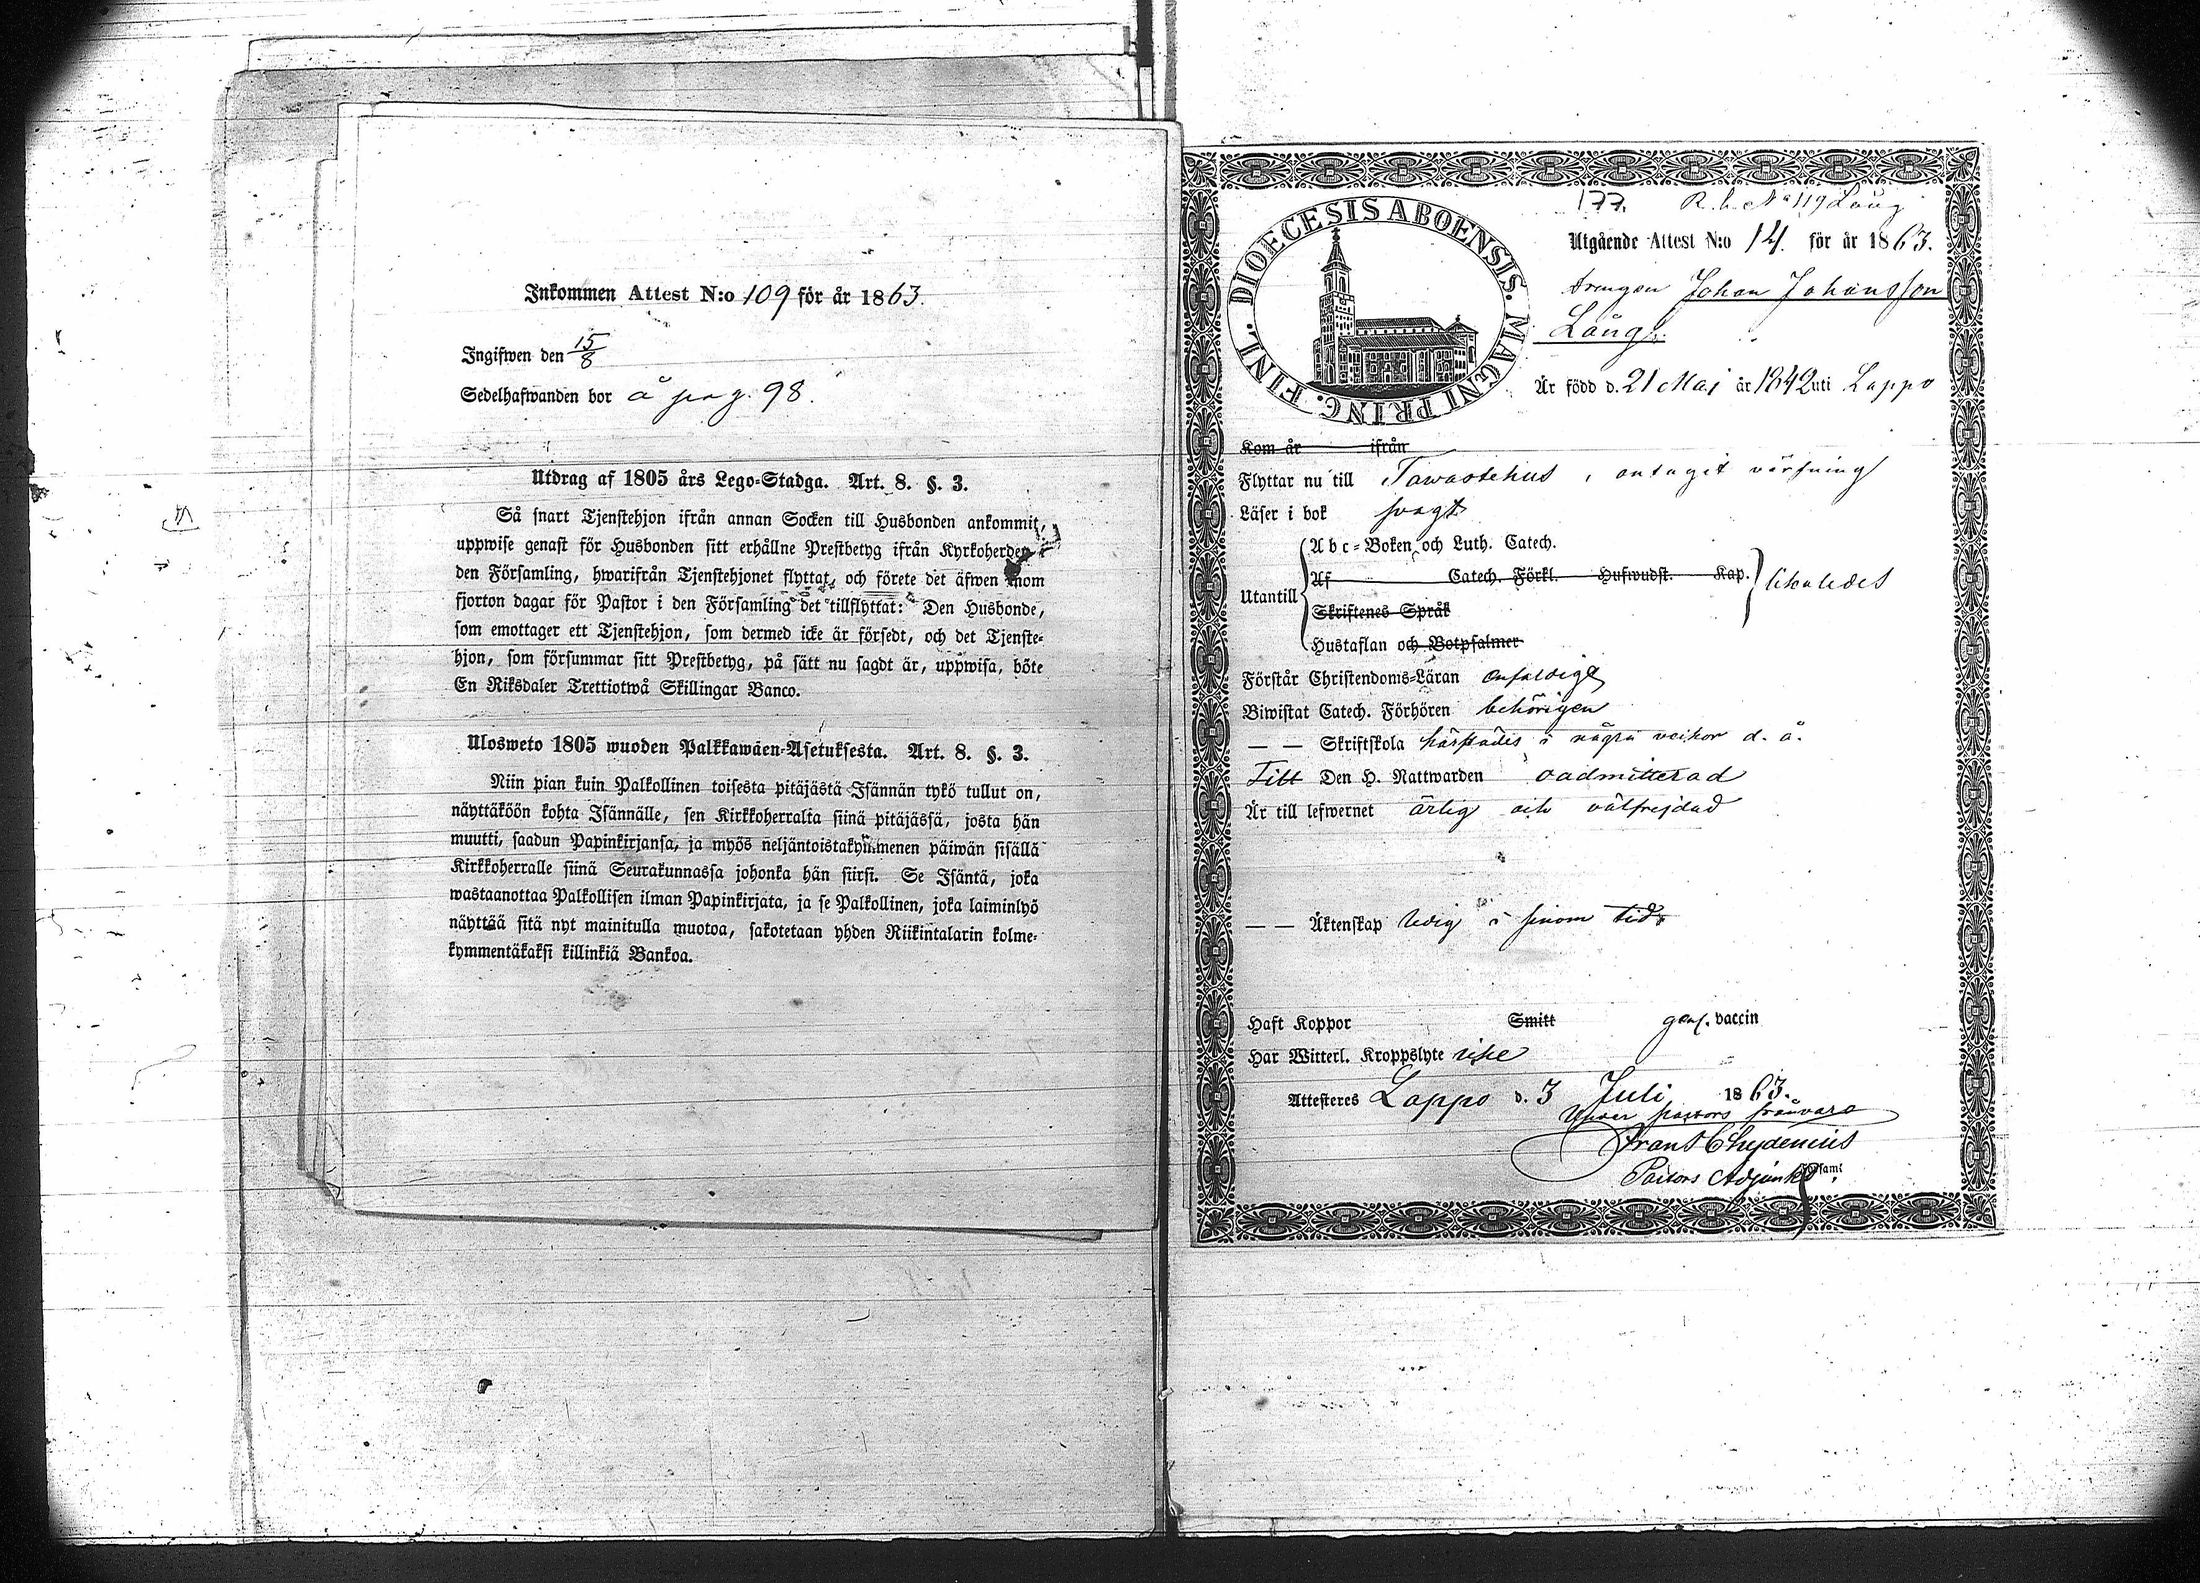 Inkommen Attest N:o 109 för år 1863.
Ingifwen den 15/8
Sedelhafwanden bor å pag. 98.
Utdrag af 1805 års Lego-Stadga. Art. 8. §. 3.
Så snart Tjenstehjon ifrån annan Socken till Husbonden ankommit,
uppwise genast för Husbonden sitt erhållne Prestbetyg ifrån Kyrkoherden i
den Församling, hwarifrån Tjenstehjonet flyttat, och förete det äfwen inom
fjorton dagar för Pastor i den Församling det tillflyttat: Den Husbonde,
som emottager ett Tjenstehjon, som dermed icke är försedt, och det Tjenste-
hjon, som försummar sitt Prestbetyg, på sätt nu sagdt är, uppwisa, böte
En Riksdaler Trettiotwå Skillingar Banco.
Ulosweto 1805 wuoden Palkkawäen-Asetuksesta. Art. 8. §. 3.
Niin pian kuin Palkollinen toisesta pitäjästä Isännän tykö tullut on,
näyttäköön kohta Isännälle, sen Kirkkoherralta siinä pitäjässä, josta hän
muutti, saadun Papinkirjansa, ja myös neljäntoistakymmenen päiwän sisällä
Kirkkoherralle siinä Seurakunnassa johonka hän siirsi. Se Isäntä, joka
wastaanottaa Palkollisen ilman Papinkirjata, ja se Palkollinen, joka laiminlyö
näyttää sitä nyt mainitulla muotoa, sakotetaan yhden Riikintalarin kolme-
kymmentäkaksi killinkiä Bankoa.
177. R. b. No 119 Laüg
DIOECESIS ABOENSIS. MAGNI PRINC. FINL.
Utgående Attest N:o 14. för år 1863.
drengen Johan Johansson
Laüg
Är född d. 21 Maj år 1842 uti Lappo
Kom år ifrån
Flyttar nu till Tawastehus, antagit värfning
Läser i bok svagt
Utantill
Abc-Boken och Luth. Catech.
Af Catech. Förkl. Hufwudst. Kap.
likaledes
Skriftenes Språk
Hustaflan och Botpsalmer
Förstår Christendoms-Läran enfaldigt
Biwistat Catech. Förhören behörigen
— — Skriftskola härstädes i några veckor d. å.
Till Den H. Nattwarden oadmitterad
Är till lefwernet ärlig och välfrejdad
— — Äktenskap ledig i sinom tid
Haft Koppor Smitt gen. vaccin
Har Witterl. Kroppslyte icke
Attesteres Lappo d. 3 Juli 1863.
Under pastors frånvaro
Frans Chydenius
Pastors Adjunkt